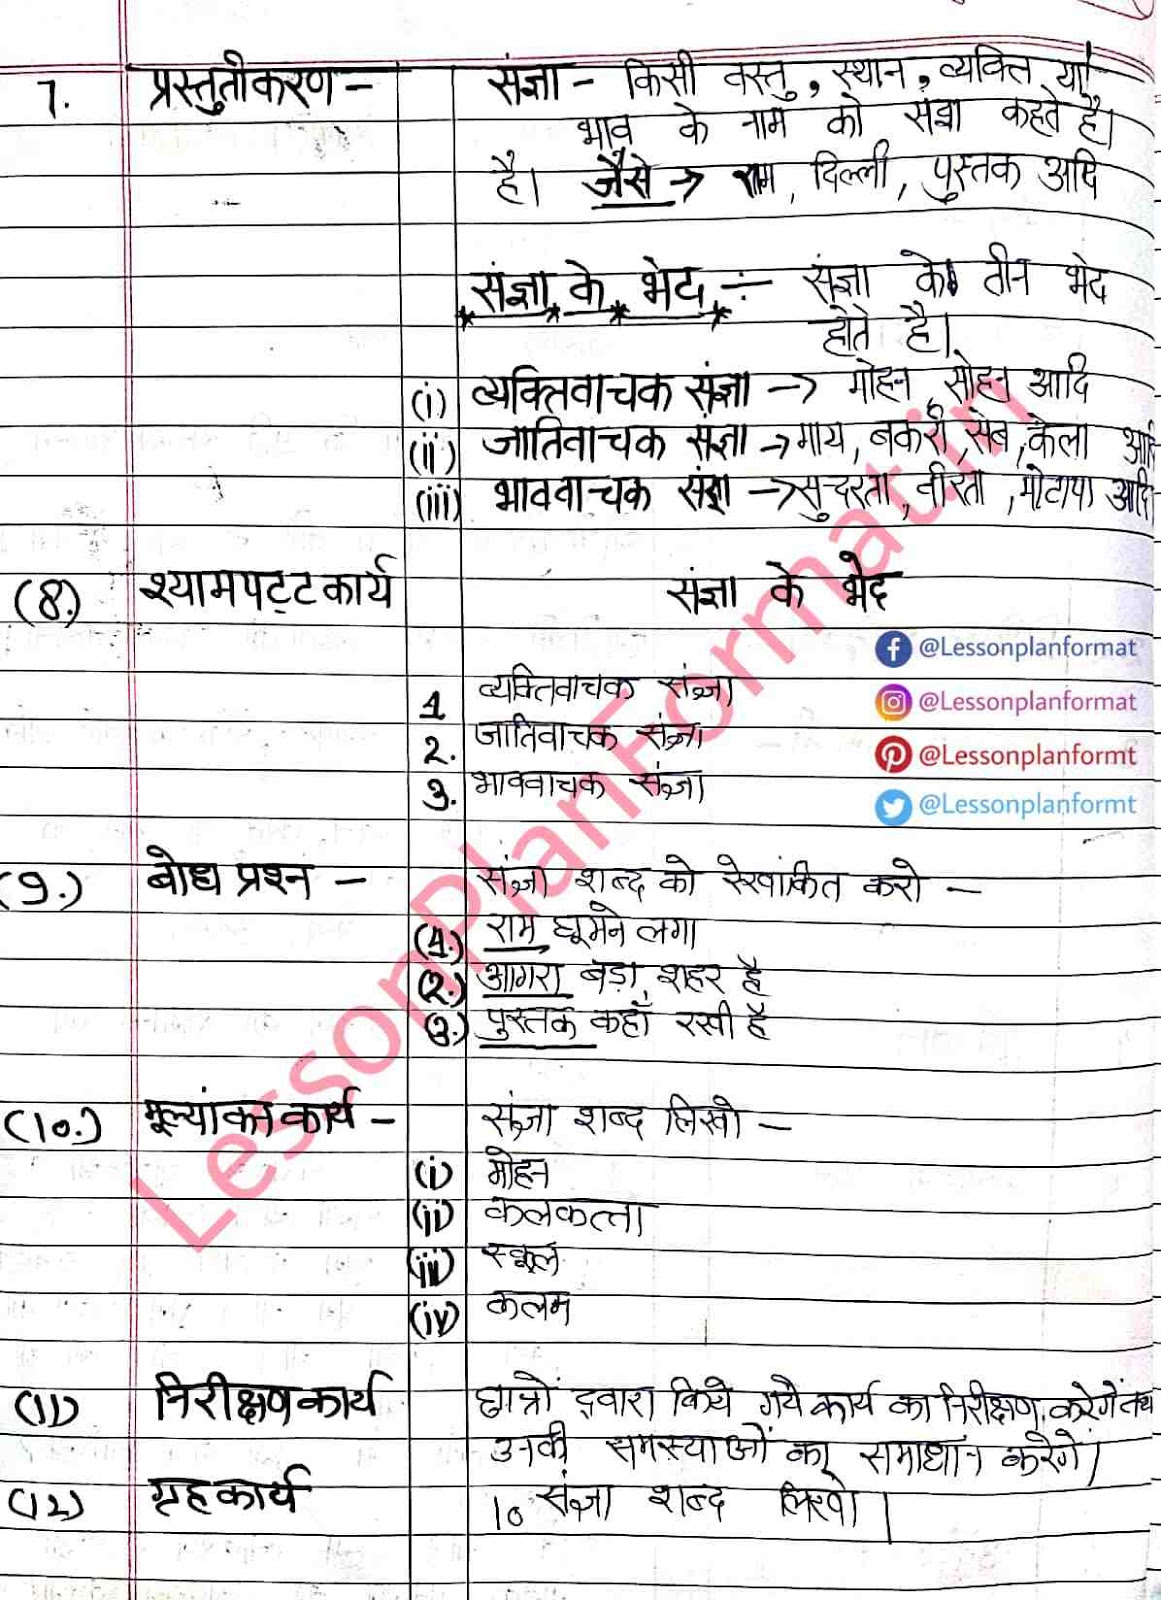 7. प्रस्तुतीकरण - संज्ञा - किसी वस्तु, स्थान, व्यक्ति या
भाव के नाम को संज्ञा कहते है।
है। जैसे → राम, दिल्ली, पुस्तक आदि
संज्ञा के भेद ÷ संज्ञा के तीन भेद
होते है।
(i) व्यक्तिवाचक संज्ञा → मोहन, सोहन आदि
(ii) जातिवाचक संज्ञा → गाय, बकरी, सेब, केला आदि
(iii) भाववाचक संज्ञा → सुन्दरता, वीरता, मोटापा आदि
(8.) श्यामपट्टकार्य संज्ञा के भेद
@Lessonplanformat
1 व्यक्तिवाचक संज्ञा
@Lessonplanformat
2. जातिवाचक संज्ञा
@Lessonplanformt
3. भाववाचक संज्ञा
@Lessonplanformt
(9.) बोध प्रश्न - संज्ञा शब्द को रेखांकित करो -
(1.) राम घूमने लगा
(2.) आगरा बड़ा शहर है
(3.) पुस्तक कहाँ रखी है
(10.) मूल्यांकन कार्य - संज्ञा शब्द लिखो -
(i) मोहन
(ii) कलकत्ता
(iii) स्कूल
(iv) कलम
(11) निरीक्षण कार्य छात्रों द्वारा किये गये कार्य का निरीक्षण करेगें तथा
उनकी समस्याओं का समाधान करेगें।
(12) गृहकार्य 10 संज्ञा शब्द लिखो।
LessonPlanFormat.in